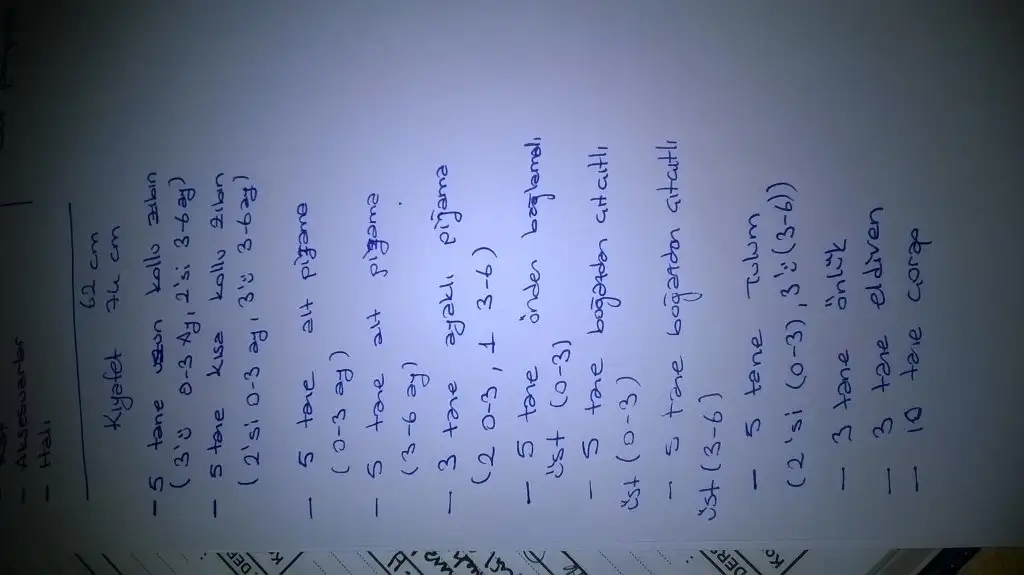 - Aksesuarlar
- Halı
62 cm
Kıyafet 74 cm
- 5 tane uzun kollu zıbın
(3'ü 0-3 Ay, 2'si 3-6 ay)
- 5 tane kısa kollu zıbın
(2'si 0-3 ay, 3'ü 3-6 ay)
- 5 tane alt pijama
(0-3 ay)
- 5 tane alt pijama
(3-6 ay)
- 3 tane ayaklı pijama
(2 0-3, 1 3-6)
- 5 tane önden bağlamalı
üst (0-3)
- 5 tane boğazdan çıtçıtlı
üst (0-3)
- 5 tane boğazdan çıtçıtlı
üst (3-6)
- 5 tane Tulum
(2'si (0-3), 3'ü (3-6))
- 3 tane önlük
- 3 tane eldiven
- 10 tane çorap